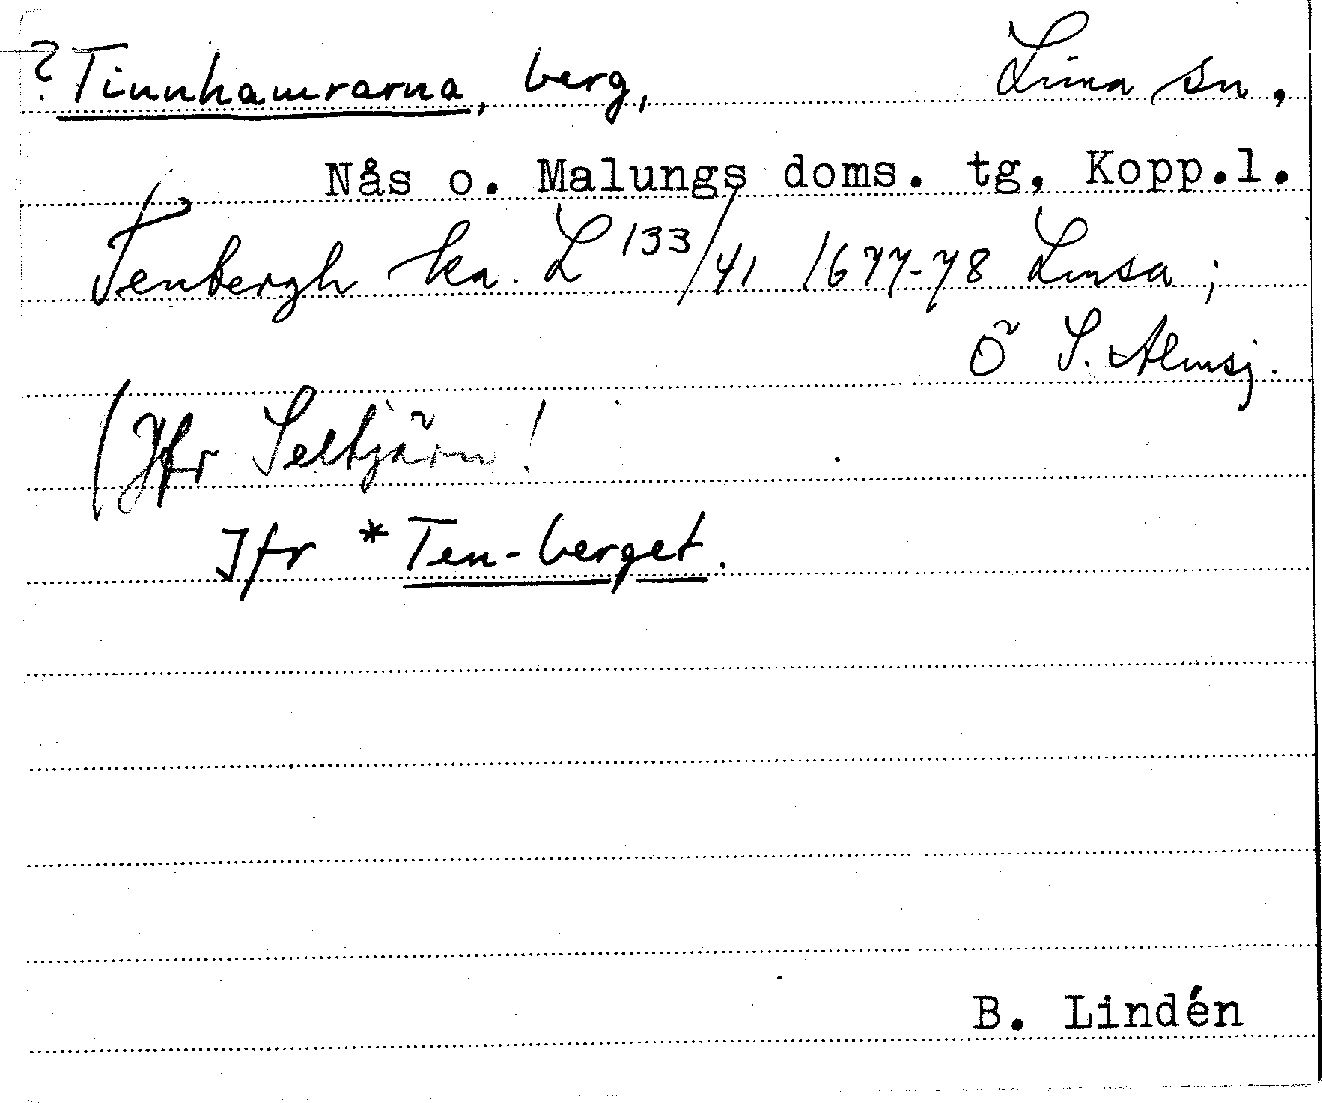 ? Tinnhamrarna, berg, Lima sn,
Nås o. Malungs doms. tg, Kopp.l.
Tenbergh ka. L 133/41 1677-78 Limsa;
Ö S. Almsj.
(Jfr Seltjärn!
Jfr *Ten-berget.
B. Lindén